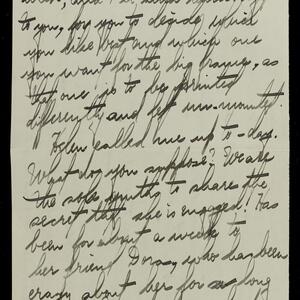 to you, for you to decide which
you like best and which one
you want for the big frame, as
that one is to be printed
differently and left un-mounted.
Helen called me up to-day.
What do you suppose? We are
the sole youths to share the
secret that she is engaged! Has
been for about a week to
her friend Dora, who has been
crazy about her for so long